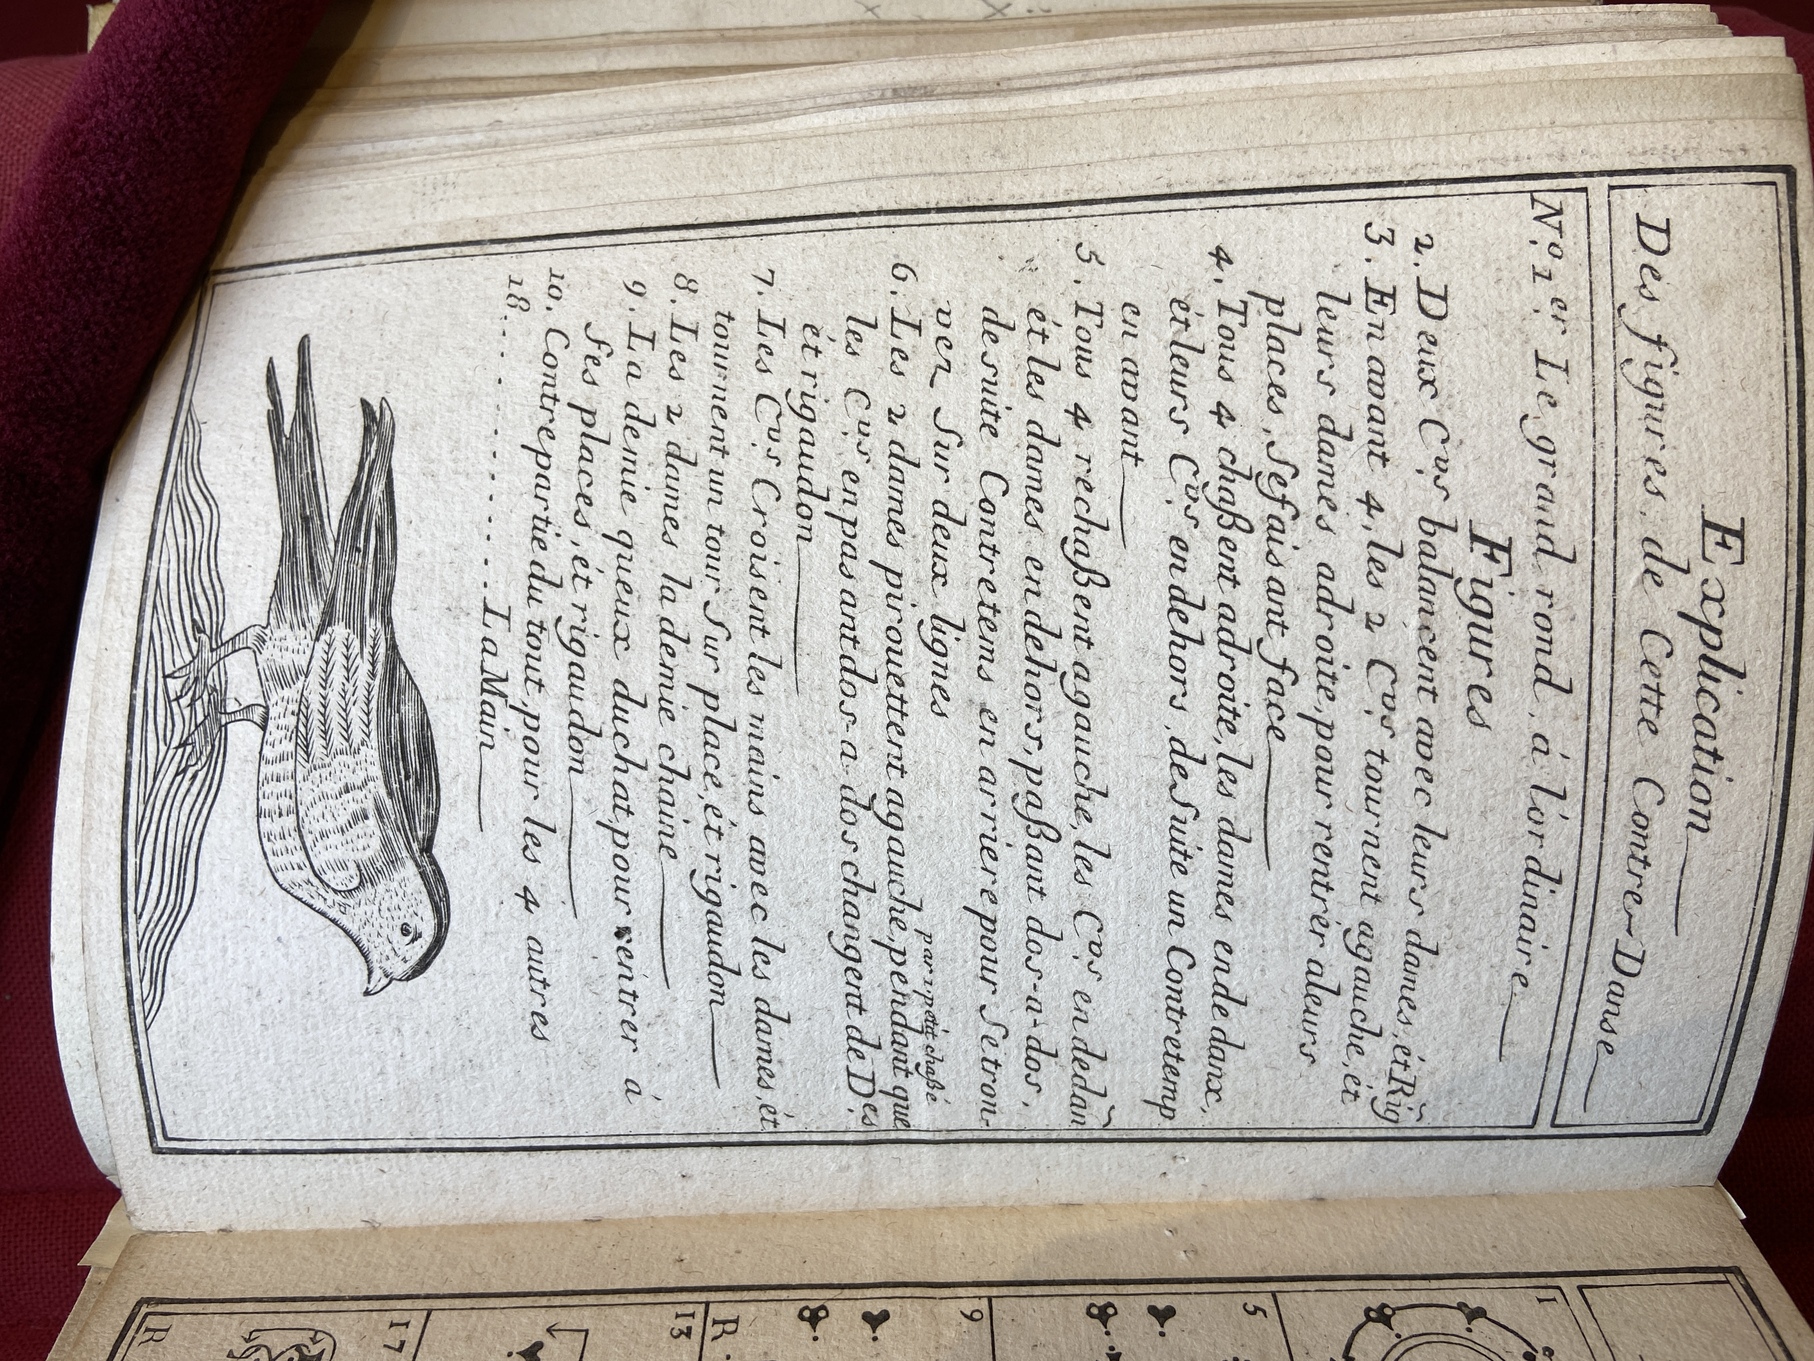 Explication
Des figures, de Cette Contre Danse
N.º 1er Le grand rond, á l'ordinaire
Figures
2. Deux C.vrs balancent avec leurs dames, ét Rig
3. En avant 4, les 2 C.vrs tournent agauche, ét
leurs dames adroite, pour rentrer aleurs
places, Se faisant face
4. Tous 4 chaßent adroite, les dames endedanx,
ét leurs C.vrs en dehors, de Suite un Contretemp
en avant
5. Tous 4 rechaßent agauche, les C.vrs en dedañ
ét les dames en dehors, paßant dos-a-dos,
de suite Contretems en arriere pour Se trou-
ver Sur deux lignes
par 1 petit chaßé
6. Les 2 dames pirouettent agauche, pendant que
les C.vrs en pas ant dos-a-dos changent de D.es
ét rigaudon
7. Les C.vrs Croisent les mains avec les dames, ét
tournent un tour Sur place, ét rigaudon
8. Les 2 dames la demie chaine
9. La demie queux du chat, pour rentrer á
Ses places, ét rigaudon
10. Contrepartie du tout, pour les 4 autres
18. . . . . . . . . . . La Main
1
5
9
R
13
17
R